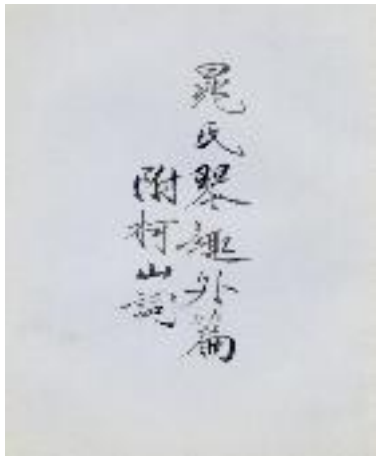 晁氏琴趣外篇
附柯山詞